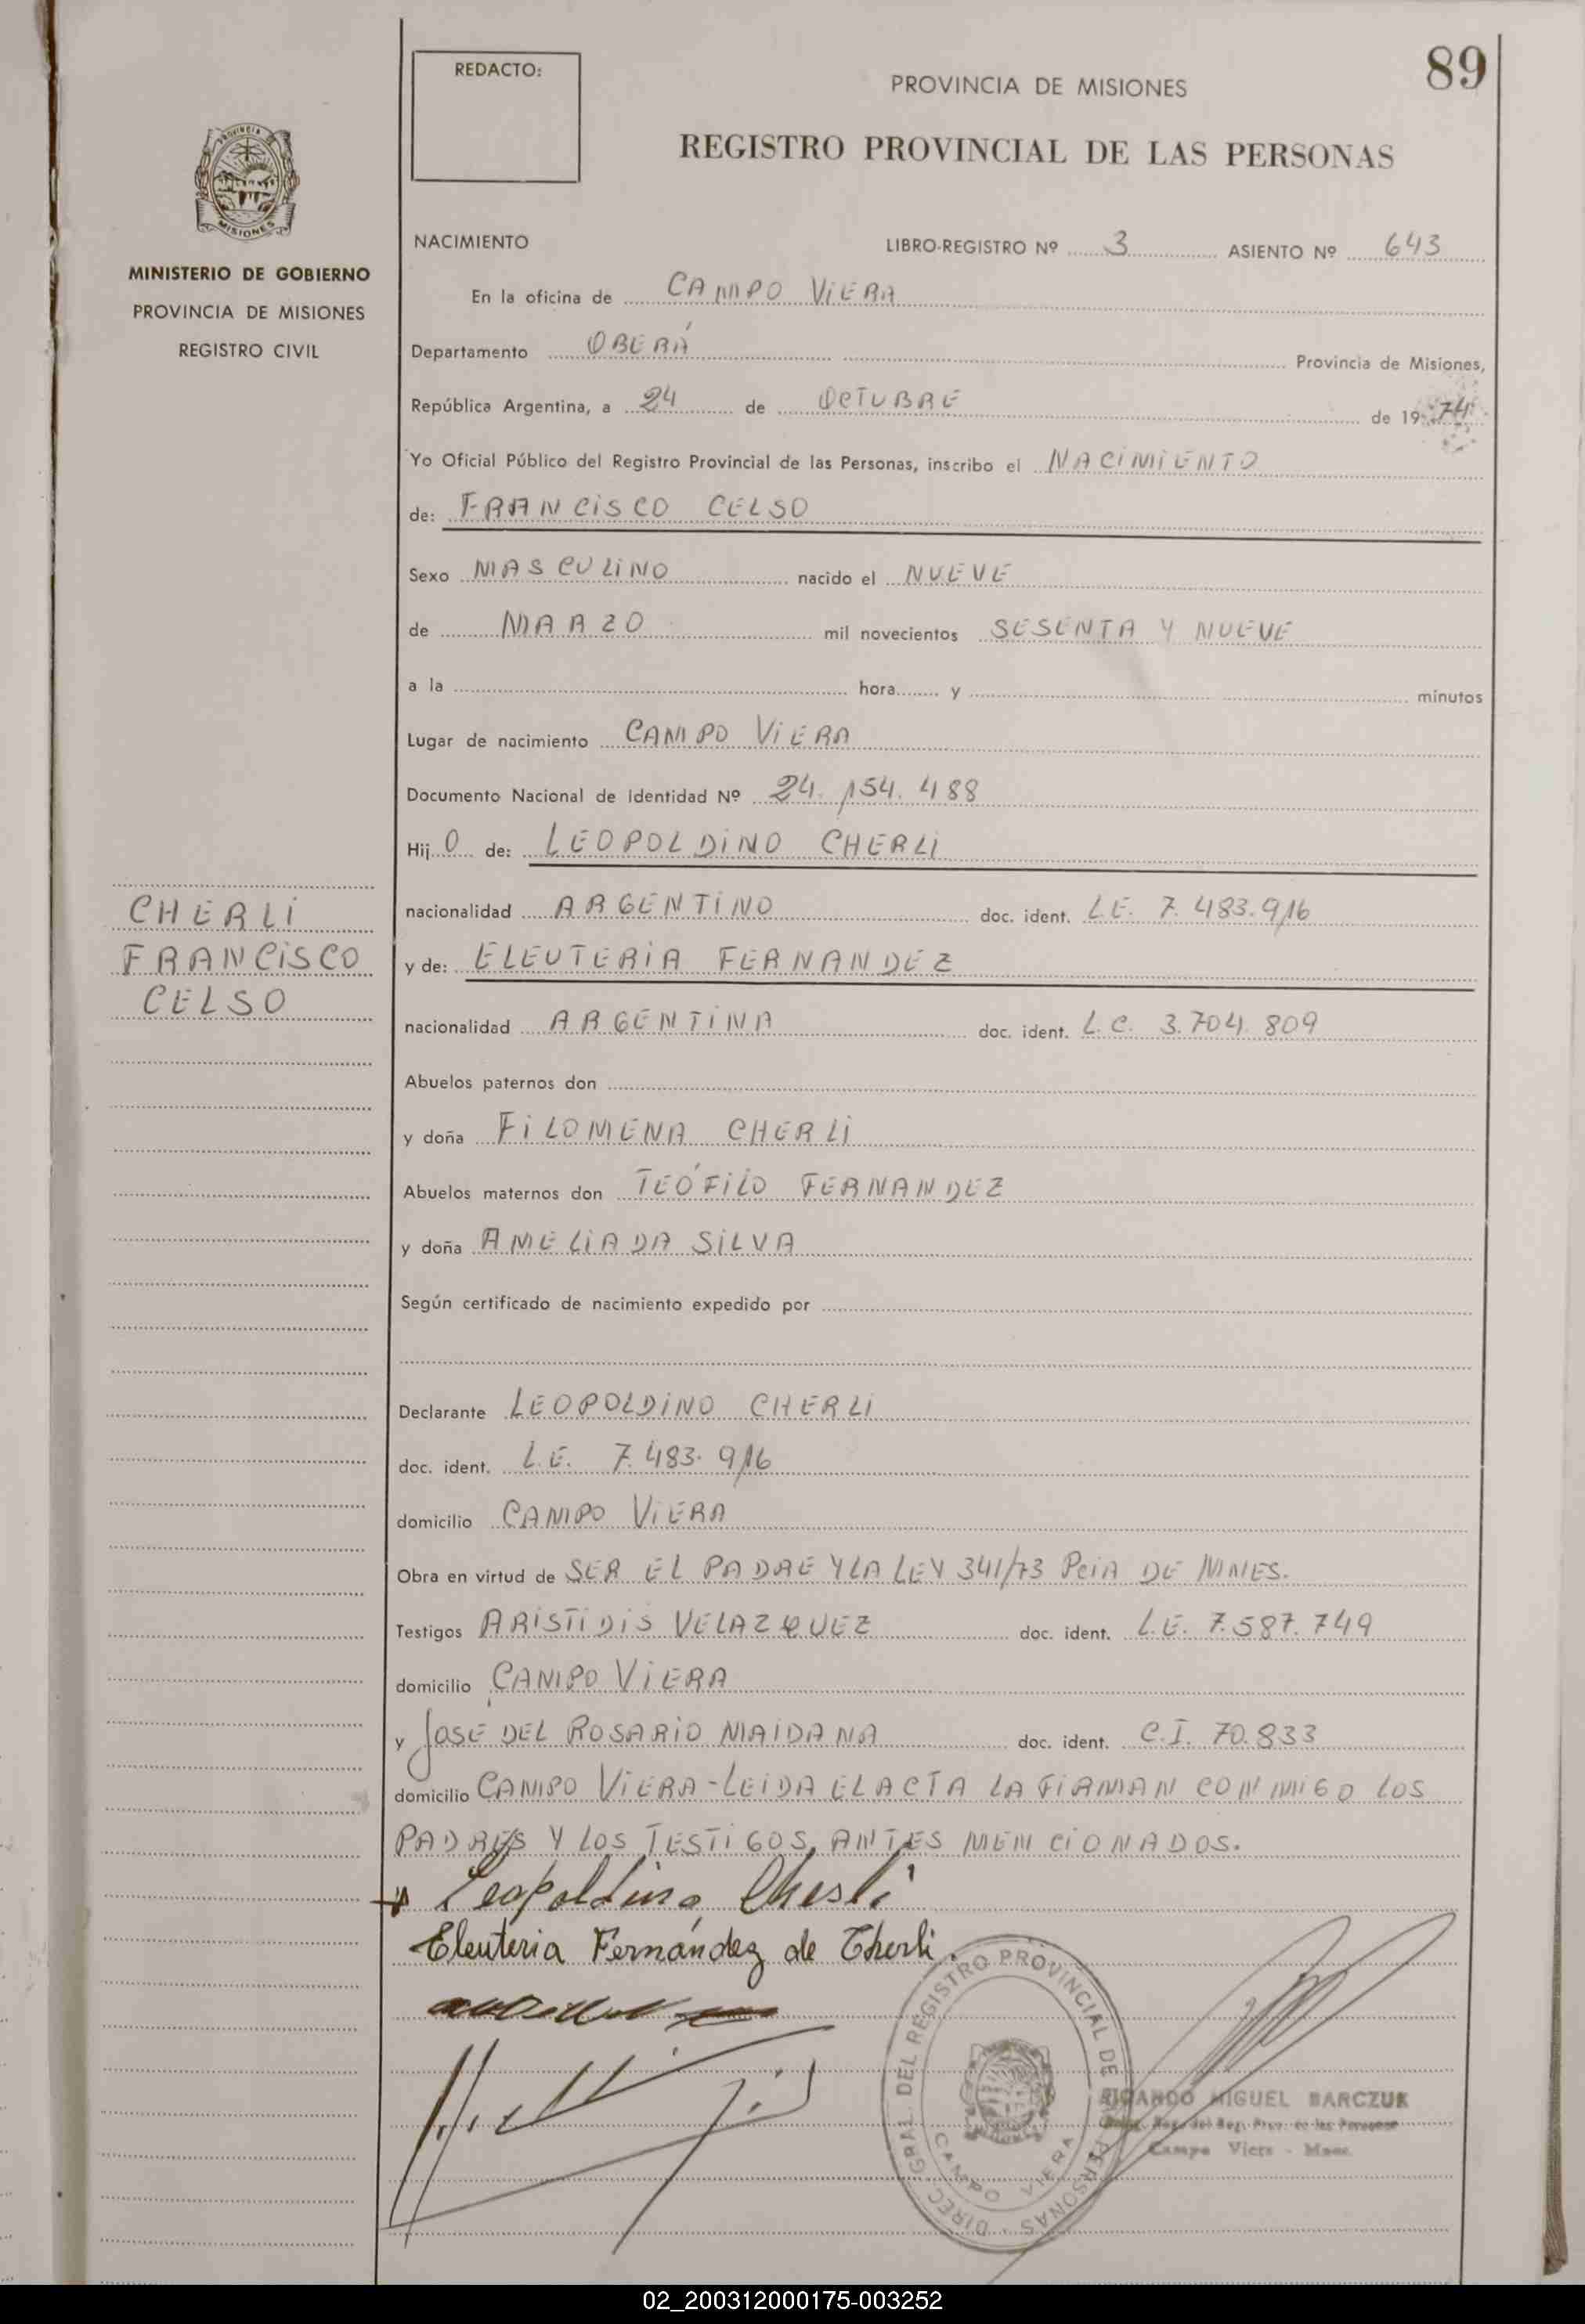 REDACTO:
89
PROVINCIA DE MISIONES
REGISTRO PROVINCIAL DE LAS PERSONAS
PROVINCIA DE MISIONES
MINISTERIO DE GOBIERNO
PROVINCIA DE MISIONES
REGISTRO CIVIL
CHERLI
FRANCISCO
CELSO
NACIMIENTO LIBRO-REGISTRO Nº 3 ASIENTO Nº 643
En la oficina de CAMPO VIERA
Departamento OBERÁ Provincia de Misiones,
República Argentina, a 24 de OCTUBRE de 1974
Yo Oficial Público del Registro Provincial de las Personas, inscribo el NACIMIENTO
de: FRANCISCO CELSO
Sexo MASCULINO nacido el NUEVE
de MARZO mil novecientos SESENTA Y NUEVE
a la hora y minutos
Lugar de nacimiento CAMPO VIERA
Documento Nacional de Identidad Nº 24.154.488
Hij O de: LEOPOLDINO CHERLI
nacionalidad ARGENTINO doc. ident. L.E. 7.483.916
y de: ELEUTERIA FERNANDEZ
nacionalidad ARGENTINA doc. ident. L.C. 3.704.809
Abuelos paternos don
y doña FILOMENA CHERLI
Abuelos maternos don TEÓFILO FERNANDEZ
y doña AMELIA DA SILVA
Según certificado de nacimiento expedido por
Declarante LEOPOLDINO CHERLI
doc. ident. L.E. 7.483.916
domicilio CAMPO VIERA
Obra en virtud de SER EL PADRE Y LA LEY 341/73 PCIA DE MNES.
Testigos ARISTIDIS VELAZQUEZ doc. ident. L.E. 7.587.749
domicilio CAMPO VIERA
y JOSÉ DEL ROSARIO MAIDANA doc. ident. C.I. 70.833
domicilio CAMPO VIERA-LEIDA EL ACTA LA FIRMAN CONMIGO LOS
PADRES Y LOS TESTIGOS, ANTES MENCIONADOS.
Leopoldino Cherli
Eleuteria Fernández de Cherli.
DIREC. GRAL. DEL REGISTRO PROVINCIAL DE PERSONAS
CAMPO VIERA
RICARDO MIGUEL BARCZUK
del Reg. Prov. de las Personas
Campo Viera - Mnes.
02_200312000175-003252